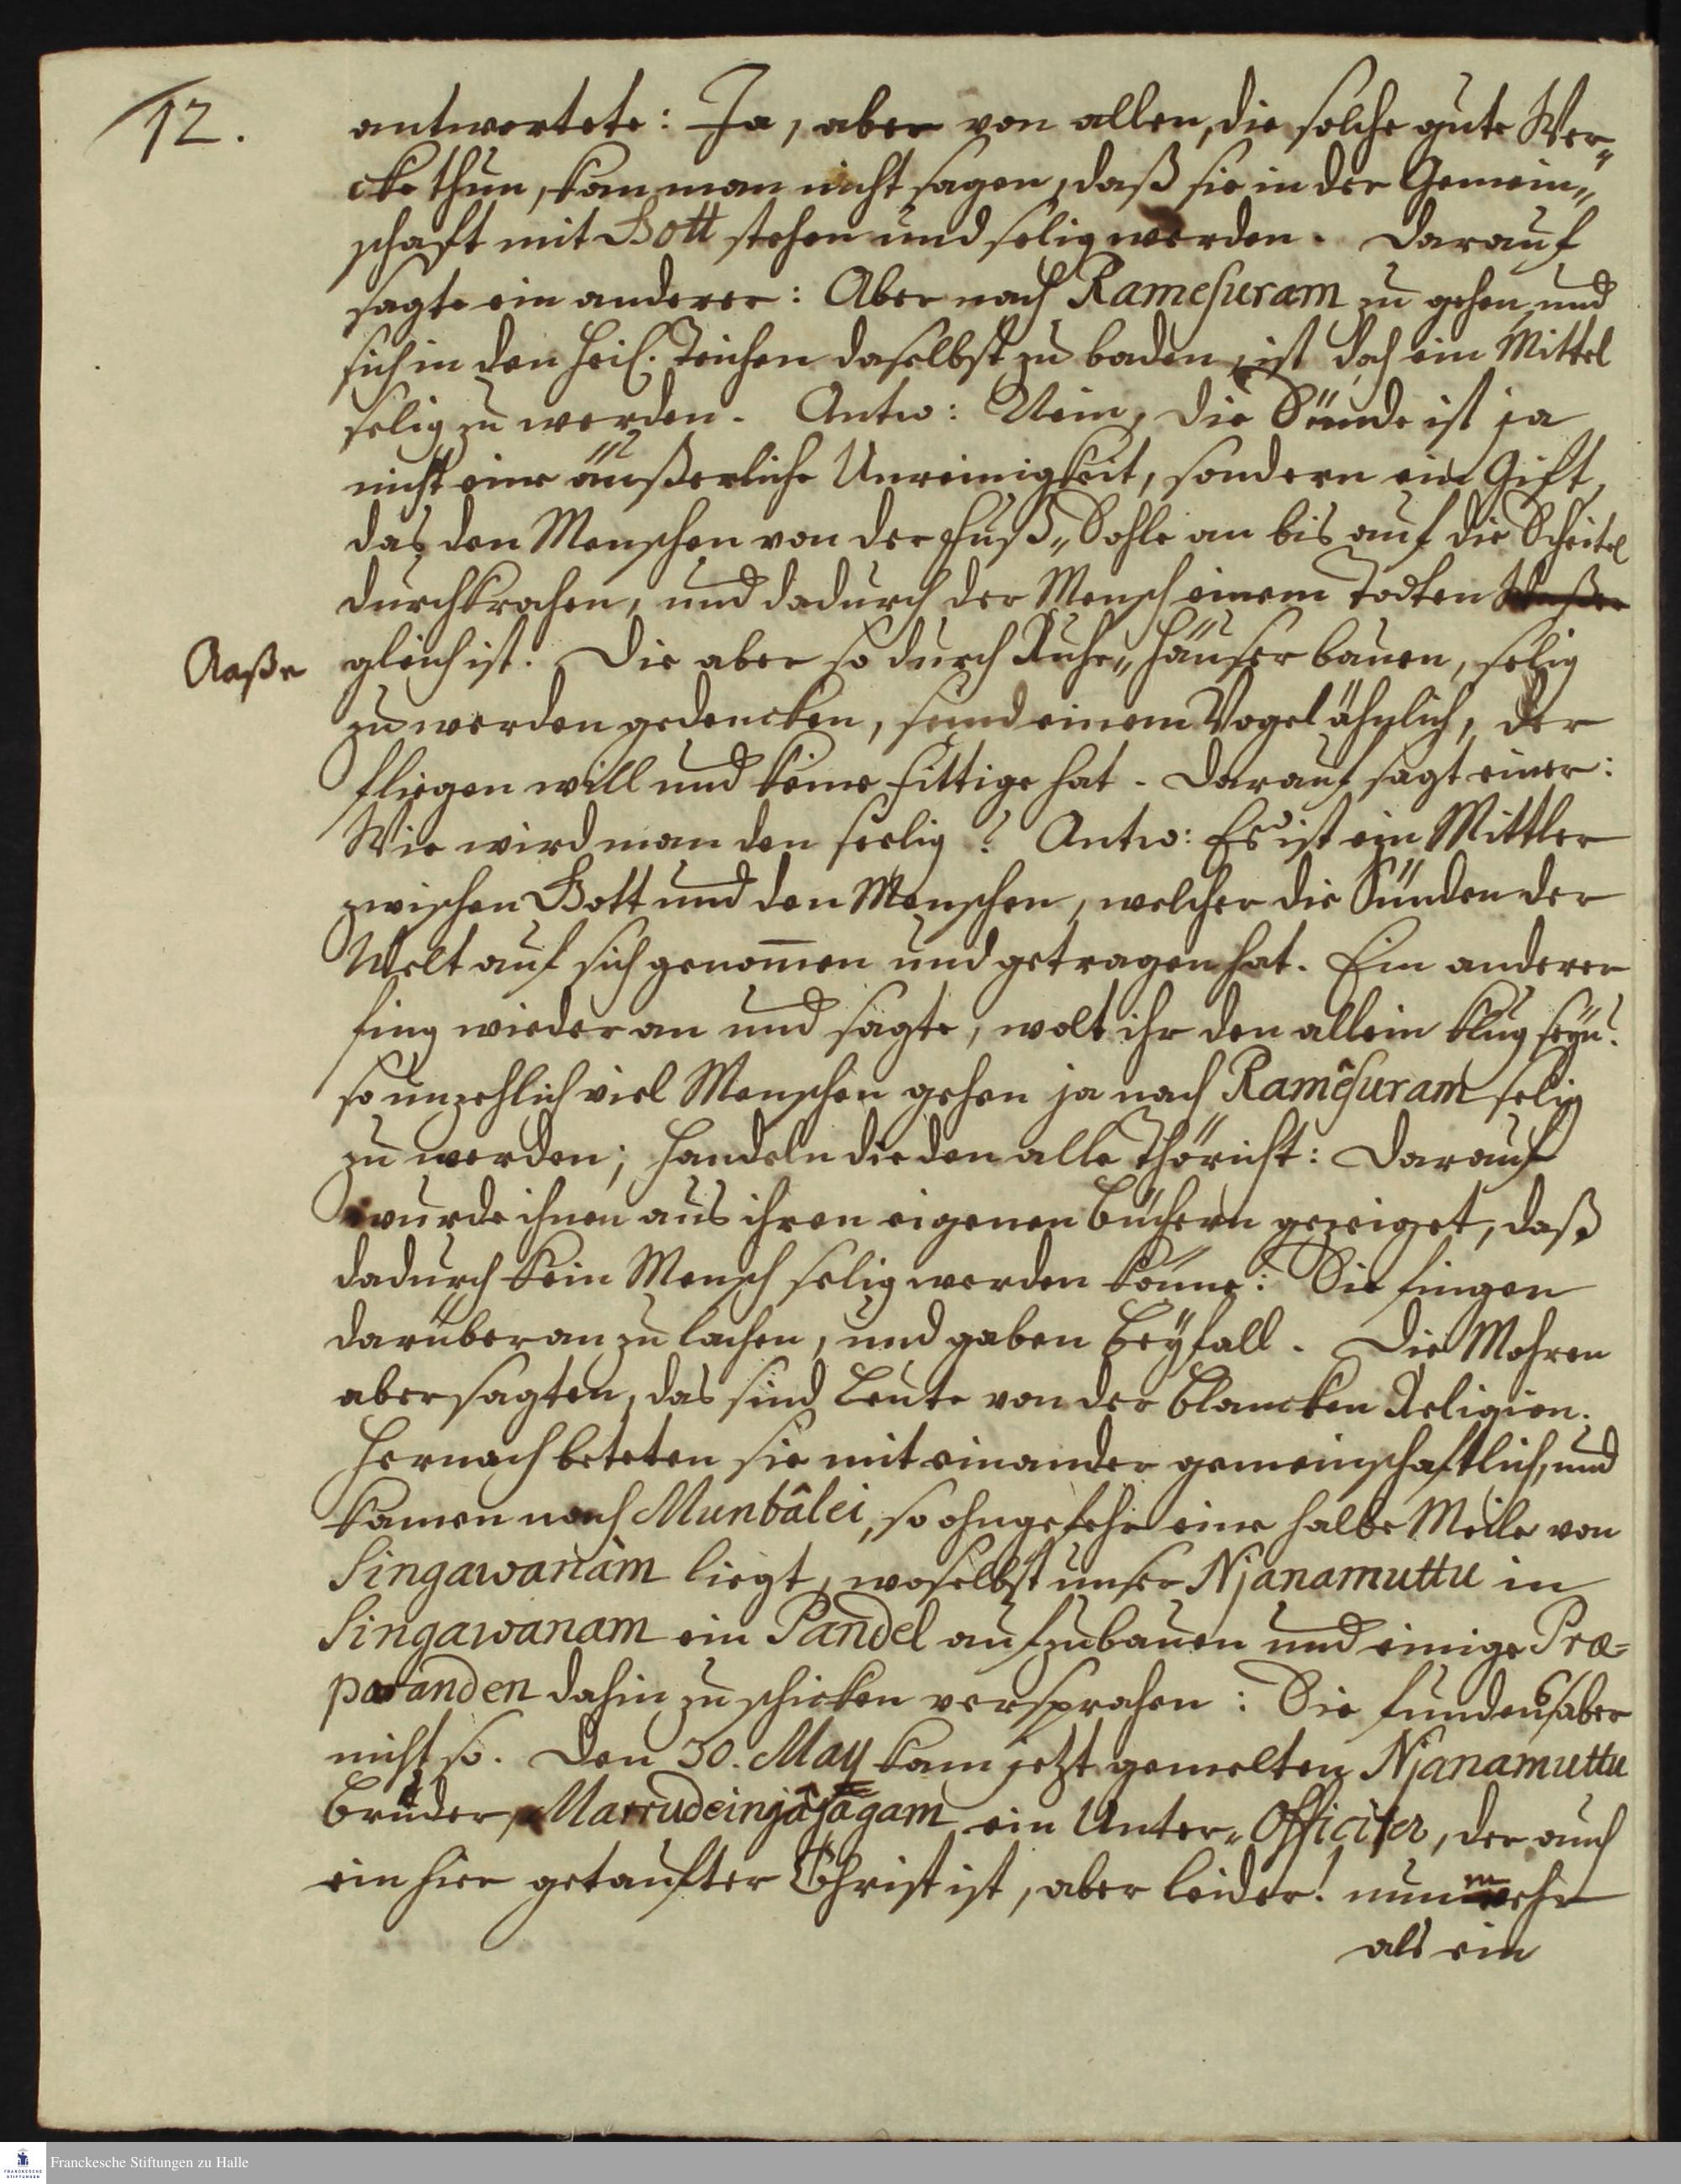 12.
antwortete: Ja, aber von allen, die solche gute Wer„
cke thun, kan man nicht sagen, daß sie in der Gemein„
schaft mit Gott stehen und selig werden. Darauf
sagte ein anderer: Aber nach Ramesuram zu gehen und
sich in den heil. Teichen daselbst zu baden, ist doch ein Mittel
selig zu werden. Antw: Nein, die Sünde ist ja
nicht eine äußerliche Unreinigkeit, sondern ein Gift,
das den Menschen von der Fuß„Sohle an bis auf die Scheitel
durchkrochen, und dadurch der Mensch einem todten
Aaße
gleich ist. Die aber so durch Ruhe„Häuser bauen, selig
zu werden gedencken, seind einem Vogel ähnlich, der
fliegen will und keine Fittige hat. Darauf sagt einer:
Wie wird man den seelig? Antw: Es ist ein Mittler
zwischen Gott und den Menschen, welcher die Sünden der
Welt auf sich genom̄en und getragen hat. Ein anderer
fing wieder an und sagte, wolt ihr den allein klug seÿn?
so unzehlich viel Menschen gehen ja nach Ramêsuram selig
zu werden; handeln die den alle thöricht: Darauf
wurde ihnen aus ihren eigenen Büchern gezeiget, daß
dadurch kein Mensch selig werden könne: Sie fingen
darüber an zu lachen, und gaben Beÿfall. Die Mohren
aber sagten, das sind Leute von der Blancken Religion.
Hernach beteten sie mit einander gemeinschaftlich, und
kamen nach Munbâlei, so ohngefehr eine halbe Meile von
Singawanam liegt, woselbst unser Njanamuttu in
Singawanam ein Pandel aufzubauen und einige Præ=
paranden dahin zu schicken versprochen: Sie fundens aber
nicht so. Den 30. May kam jetzt gemelten Njanamuttu
Bruder, Marrudeinjâjagam ein Unter„Officier, der auch
ein hier getaufter Christ ist, aber leider! nunmehr
als ein
Franckesche Stiftungen zu Halle